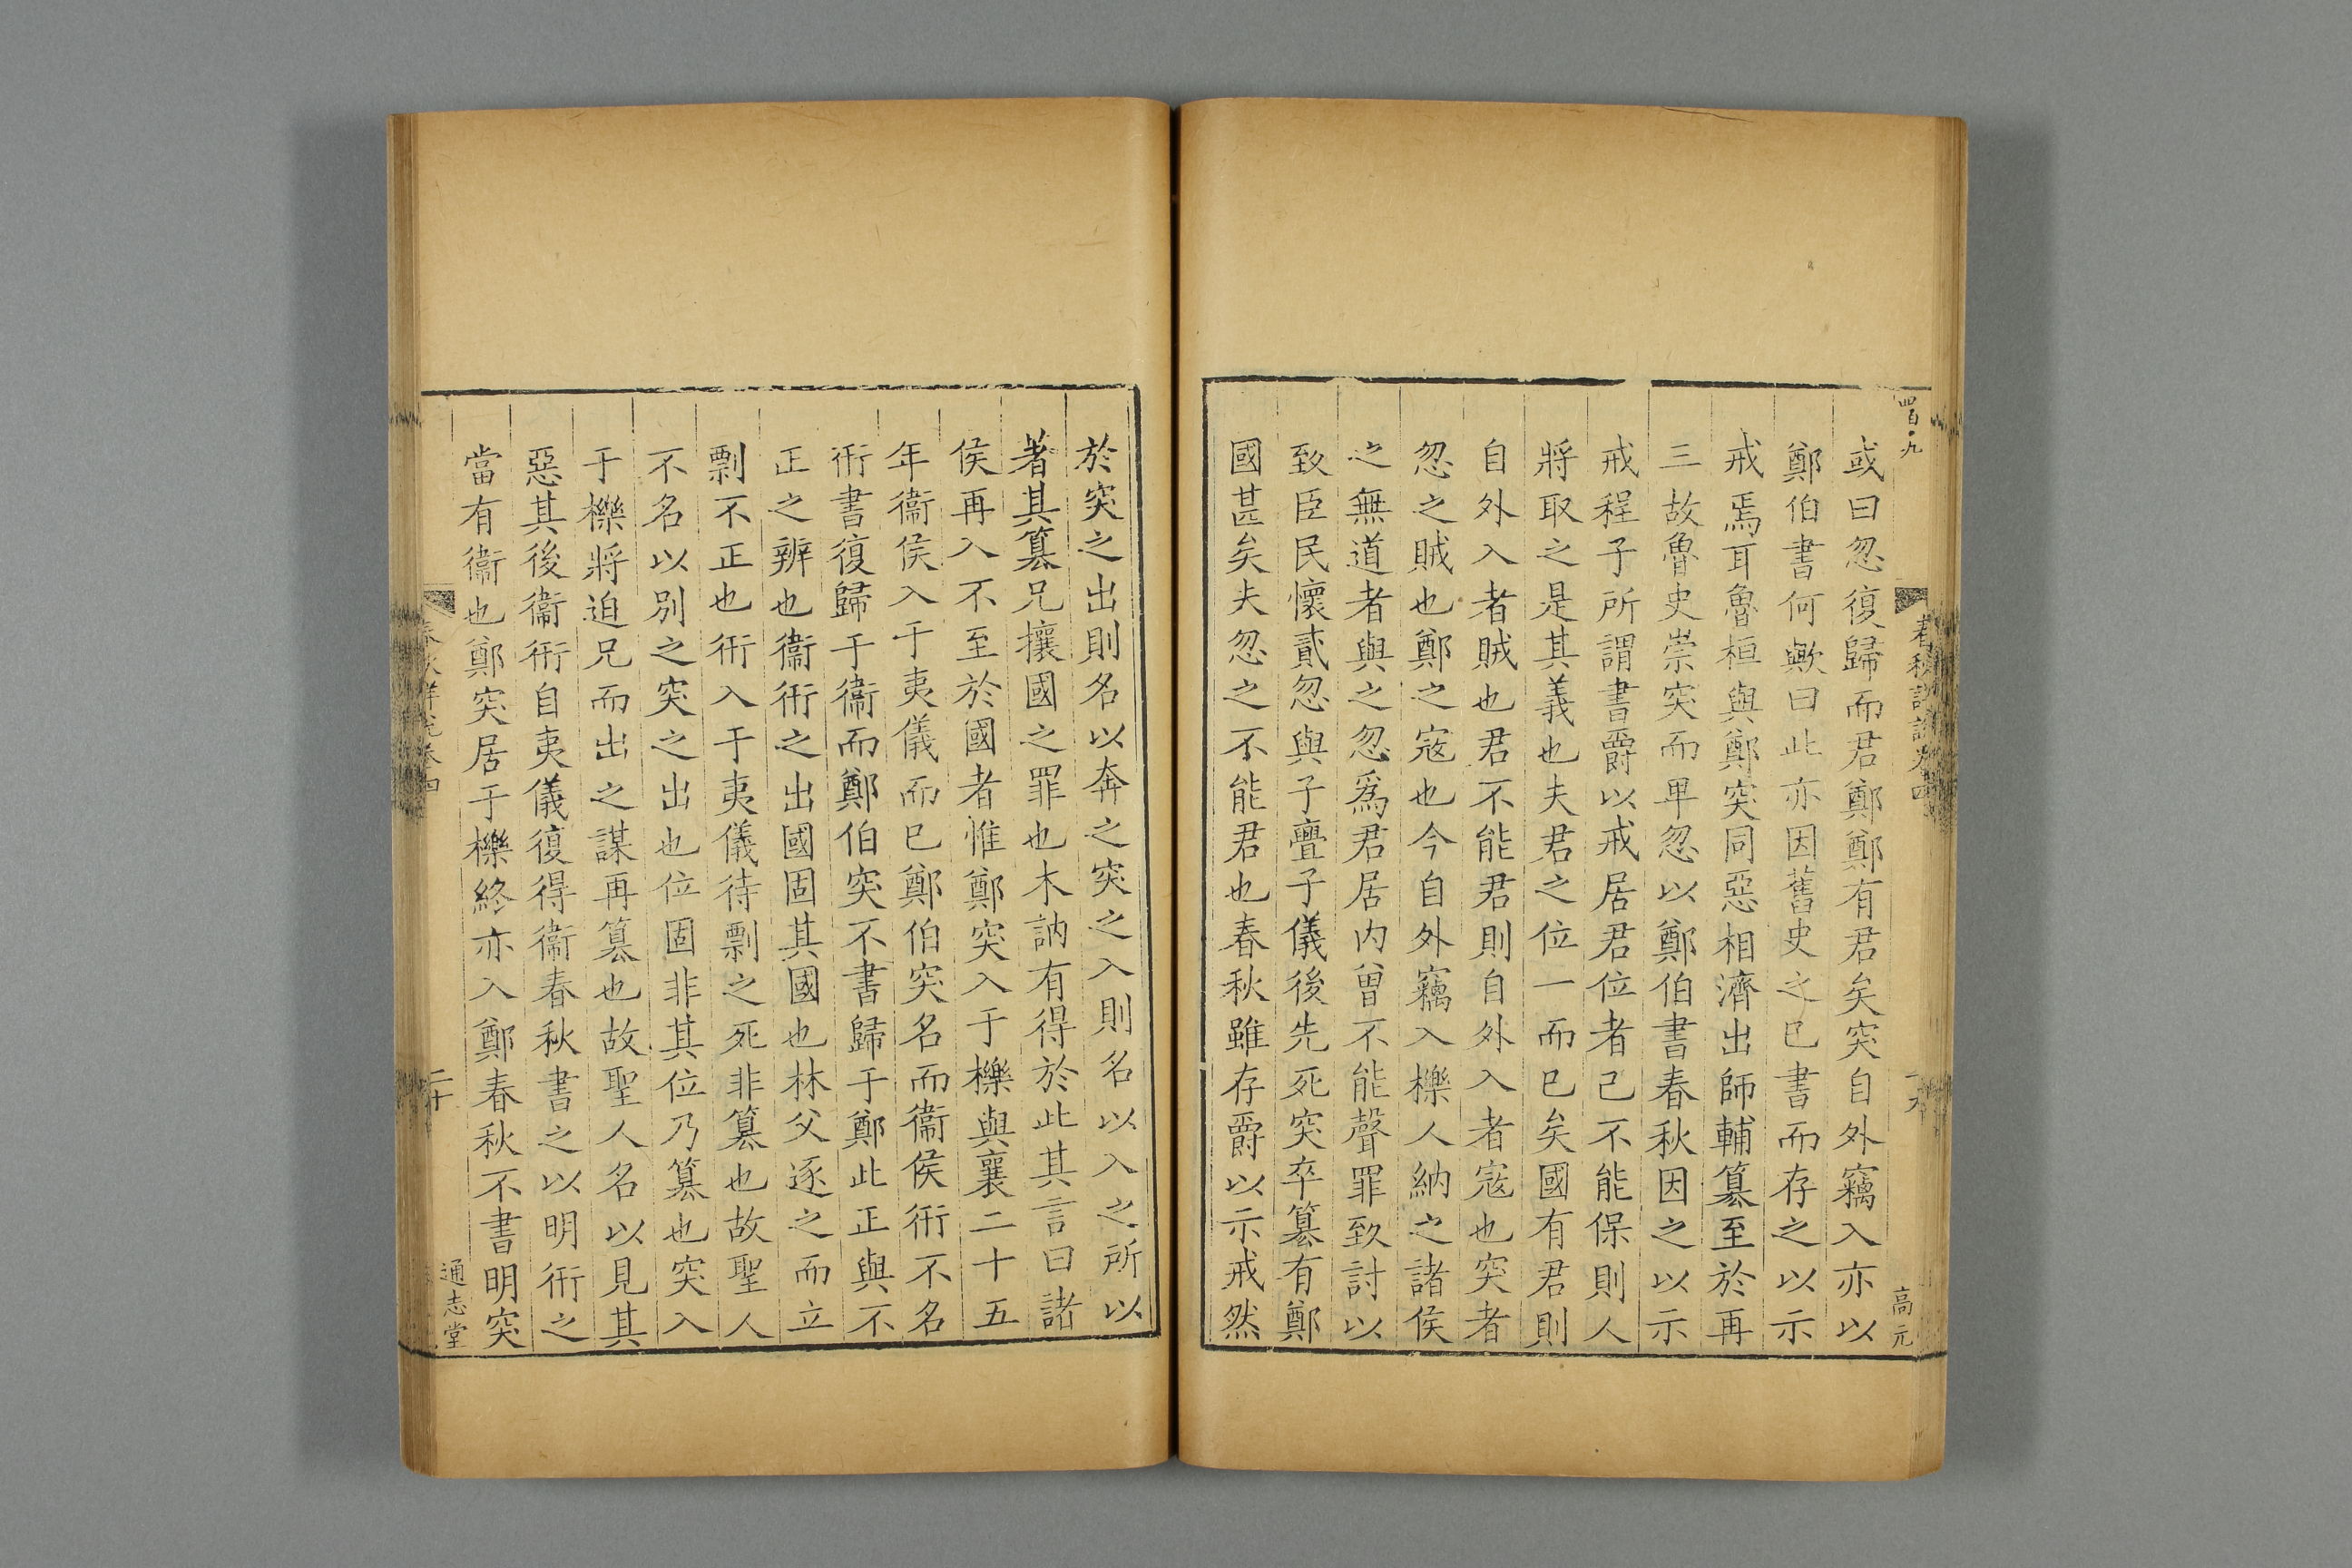 四百〇九
春秋詳說卷四
十九
高元
或曰忽復歸而君鄭鄭有君矣突自外竊入亦以
鄭伯書何歟曰此亦因舊史之已書而存之以示
戒焉耳魯桓與鄭突同惡相濟出師輔篡至於再
三故魯史崇突而卑忽以鄭伯書春秋因之以示
戒程子所謂書爵以戒居君位者己不能保則人
將取之是其義也夫君之位一而已矣國有君則
自外入者賊也君不能君則自外入者寇也突者
忽之賊也鄭之寇也今自外竊入櫟人納之諸侯
之無道者與之忽爲君居内曾不能聲罪致討以
致臣民懷貳忽與子亹子儀後先死突卒篡有鄭
國甚矣夫忽之不能君也春秋雖存爵以示戒然
於突之出則名以奔之突之入則名以入之所以
著其篡兄攘國之罪也木訥有得於此其言曰諸
侯再入不至於國者惟鄭突入于櫟與襄二十五
年衞侯入于夷儀而已鄭伯突名而衞侯衎不名
衎書復歸于衞而鄭伯突不書歸于鄭此正與不
正之辨也衞衎之出國固其國也林父逐之而立
剽不正也衎入于夷儀待剽之死非篡也故聖人
不名以別之突之出也位固非其位乃篡也突入
于櫟將迫兄而出之謀再篡也故聖人名以見其
惡其後衞衎自夷儀復得衞春秋書之以明衎之
當有衞也鄭突居于櫟終亦入鄭春秋不書明突
春秋詳說卷四
二十
通志堂